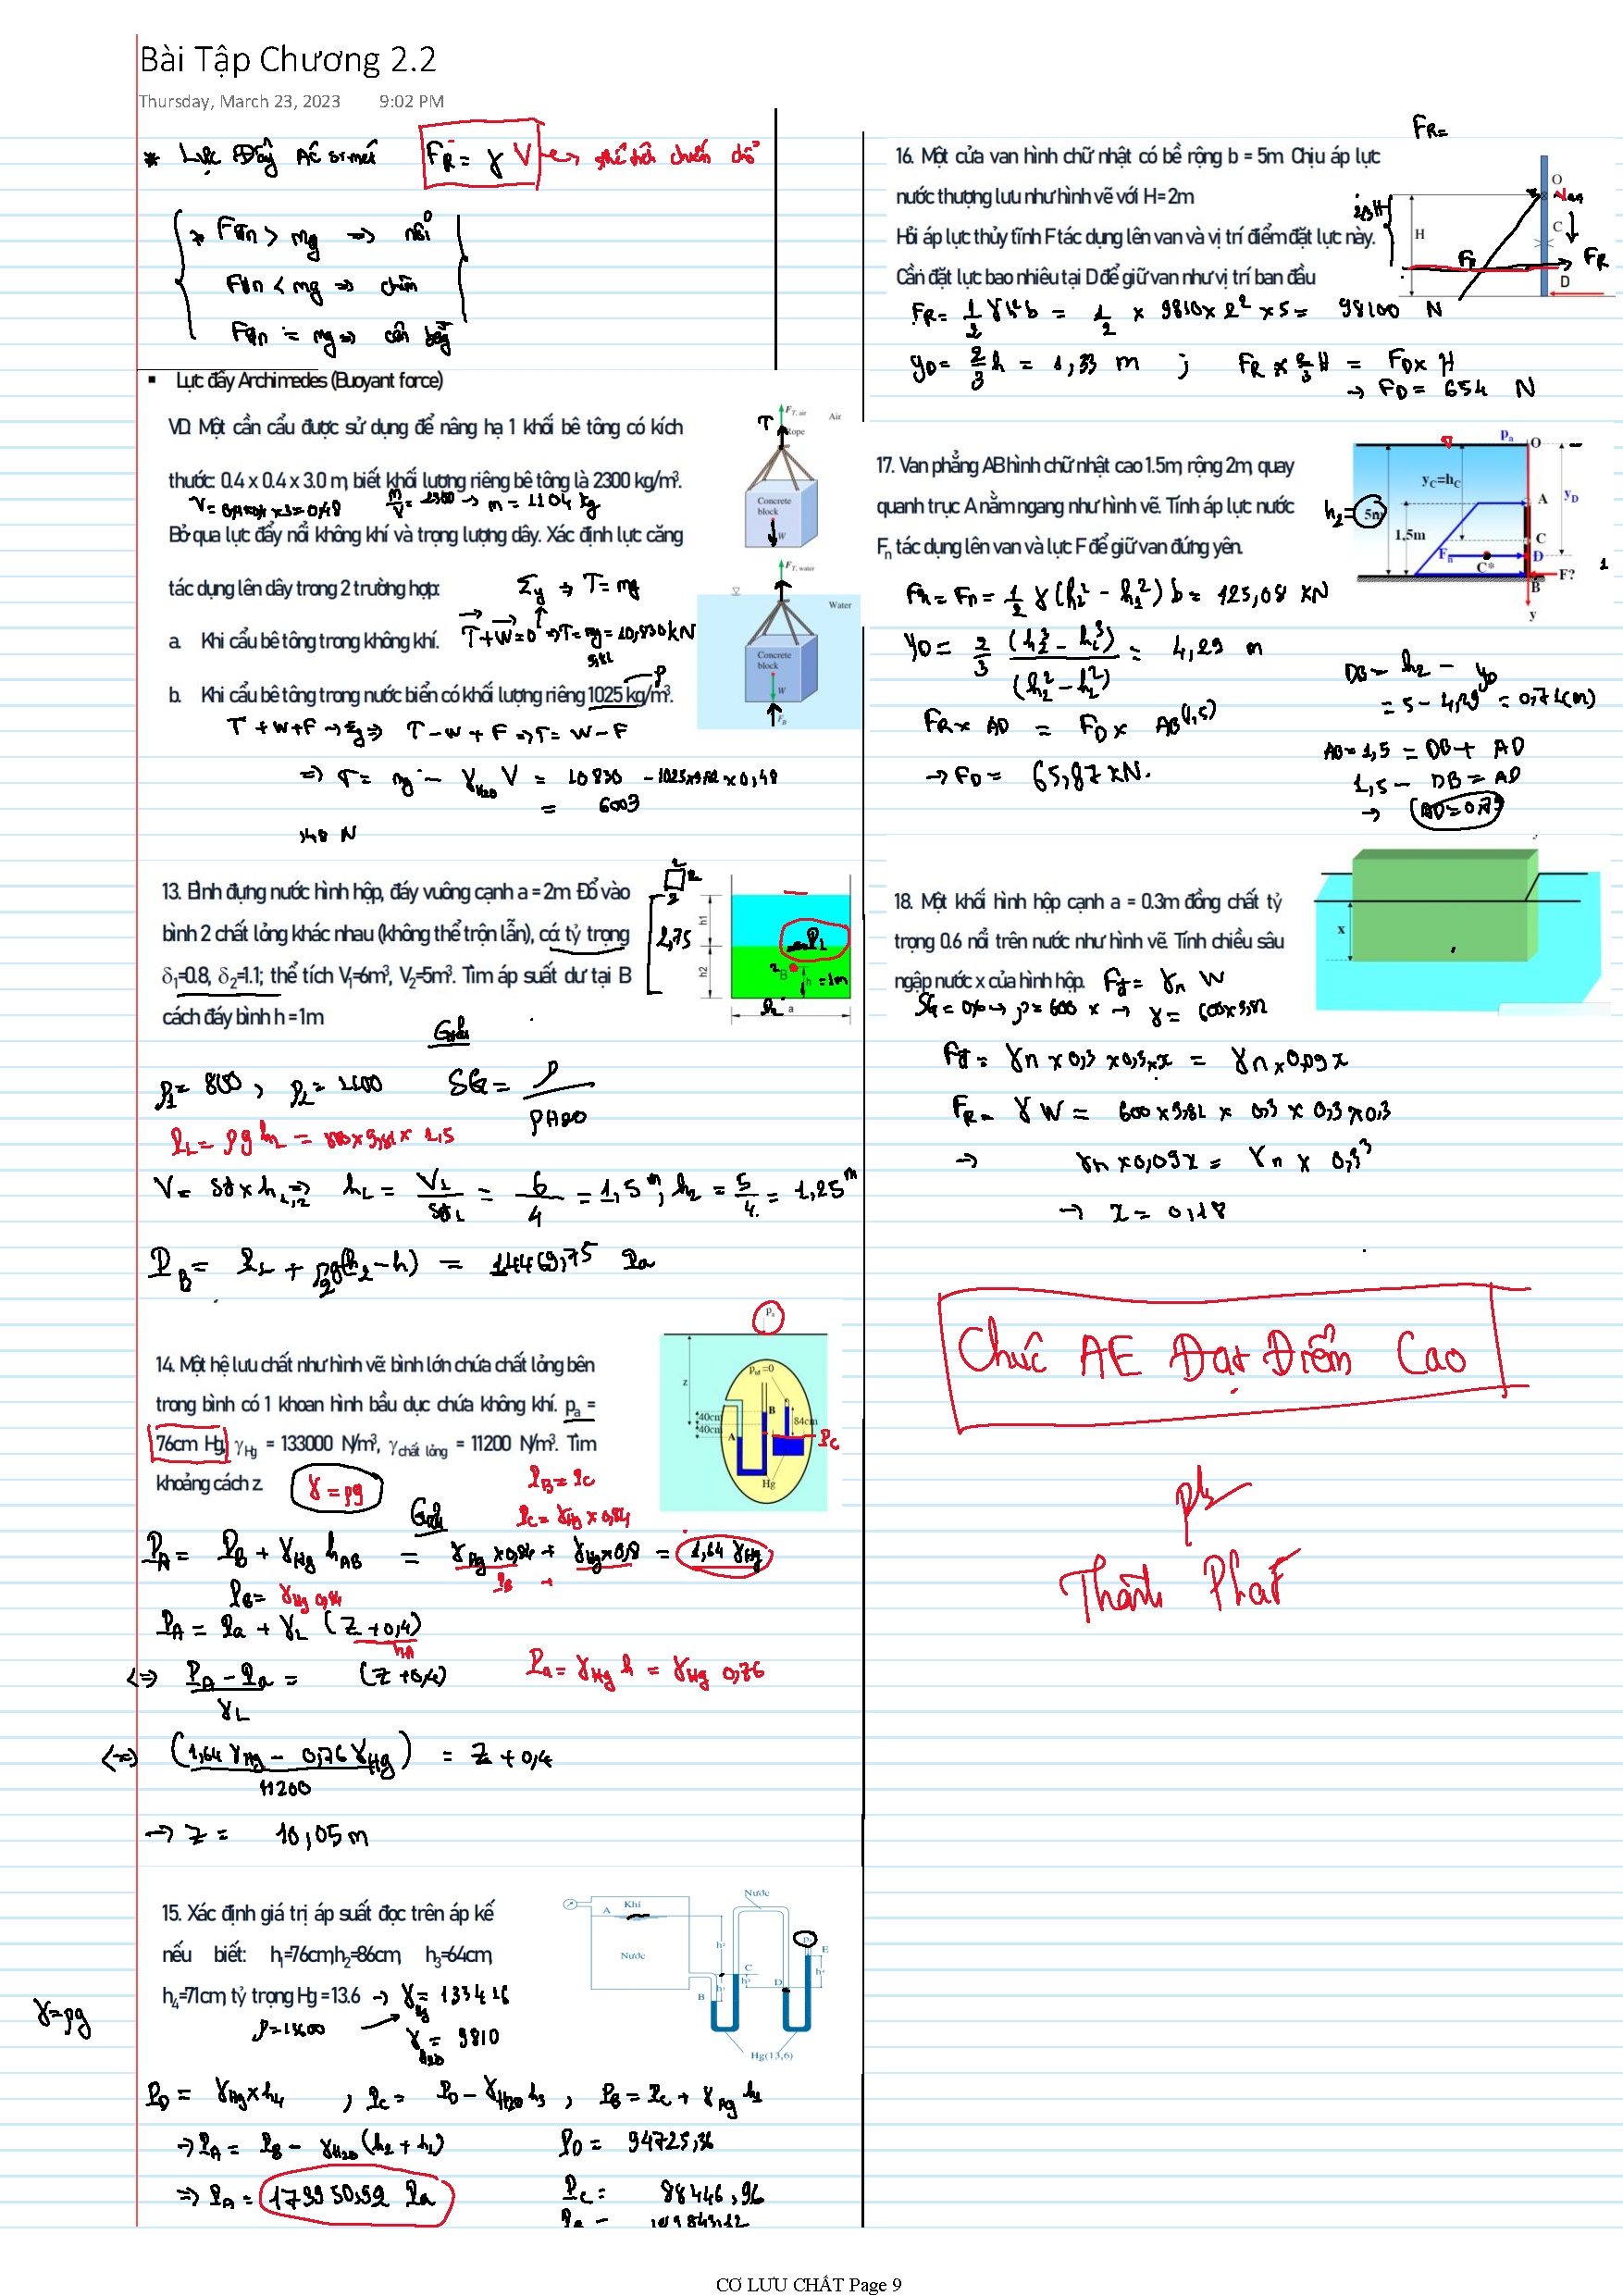 Bài Tập Chương 2.2
Thursday, March 23, 2023 9:02 PM
* Lực Đẩy Ác si mét FR = γ V → thể tích chiếm chỗ
* Fđn > mg => nổi
Fđn < mg => chìm
Fđn = mg => cân bằng
▪ Lực đẩy Archimedes (Buoyant force)
VD. Một cần cẩu được sử dụng để nâng hạ 1 khối bê tông có kích
thước: 0.4 x 0.4 x 3.0 m, biết khối lượng riêng bê tông là 2300 kg/m³.
V = 0,4x0,4x3 = 0,48 m/V = 2300 → m = 1104 kg
Bỏ qua lực đẩy nổi không khí và trọng lượng dây. Xác định lực căng
tác dụng lên dây trong 2 trường hợp: Σy => T = mg
a. Khi cẩu bê tông trong không khí. T + W = 0 => T = mg = 10,830 kN
9,81
b. Khi cẩu bê tông trong nước biển có khối lượng riêng 1025 kg/m³.
ρ
T + W + F → Σy => T - W + F => T = W - F
=> T = mg - γH2O V = 10830 - 1025x9,81 x 0,48
= 6003
,48 N
F T, air Air
T Rope
Concrete
block
W
F T, water
Water
Concrete
block
W
F B
13. Bình đựng nước hình hộp, đáy vuông cạnh a = 2m. Đổ vào
bình 2 chất lỏng khác nhau (không thể trộn lẫn), có tỷ trọng
δ₁=0.8, δ₂=1.1; thể tích V₁=6m³, V₂=5m³. Tìm áp suất dư tại B
cách đáy bình h = 1m
2 2
2,75
h1
h2
B
h = 1m
a
Giải
ρ1 = 800 , ρ2 = 1100 SG = ρ / ρH2O
P1 = ρg h1 = 800 x 9,81 x 1,5
V = Sđ x h1,2 => h1 = V1/Sđ1 = 6/4 = 1,5 m ; h2 = 5/4 = 1,25 m
PB = P1 + ρ2g(h2 - h) = 14469,75 Pa
14. Một hệ lưu chất như hình vẽ: bình lớn chứa chất lỏng bên
trong bình có 1 khoan hình bầu dục chứa không khí. pₐ =
76cm Hg, γHg = 133000 N/m³, γchất lỏng = 11200 N/m³. Tìm
khoảng cách z.
γ = ρg
PB = PC
PC = γHg x 0,84
pa
z
ptd=0
40cm
40cm
A
B
84cm
PC
Hg
Giải
PA = PB + γHg hAB = γHg x 0,84 + γHg x 0,8 = 1,64 γHg
PB
PB = γHg 0,84
PA = Pa + γL (z + 0,4)
hA
<=> PA - Pa / γL = (z + 0,4) Pa = γHg h = γHg 0,76
<=> (1,64 γHg - 0,76 γHg) / 11200 = z + 0,4
→ z = 10,05 m
15. Xác định giá trị áp suất đọc trên áp kế
nếu biết: h₁=76cm,h₂=86cm, h₃=64cm,
h₄=71cm, tỷ trọng Hg = 13.6 → γHg = 133416
ρ = 13600 γH2O = 9810
γ = ρg
Khí
A
Nước
Nước
B
C
D
E
Hg(13,6)
PD = γHg x h4 , PC = PD - γH2O h3 , PB = PC + γHg h2
→ PA = PB - γH2O (h2 + h1) PD = 94725,36
=> PA = 173950,92 Pa PC = 88446,96
FR =
16. Một cửa van hình chữ nhật có bề rộng b = 5m. Chịu áp lực
nước thượng lưu như hình vẽ với H = 2m
Hỏi áp lực thủy tĩnh F tác dụng lên van và vị trí điểm đặt lực này.
Cần đặt lực bao nhiêu tại D để giữ van như vị trí ban đầu
2/3H
H
O
Van
C
FR
D
FR = 1/2 γh²b = 1/2 x 9810 x 2² x 5 = 98100 N
yD = 2/3 h = 1,33 m ; FR x 2/3 H = FD x H
→ FD = 654 N
17. Van phẳng AB hình chữ nhật cao 1.5m, rộng 2m, quay
quanh trục A nằm ngang như hình vẽ. Tính áp lực nước
Fₙ tác dụng lên van và lực F để giữ van đứng yên.
pa O
yC=hC
yD
A
h2 = 5m
1,5m
C
Fn
D
C*
F?
B
y
FR = Fn = 1/2 γ (h2² - h1²) b = 125,08 kN
yD = 2/3 (h2³ - h1³) / (h2² - h1²) = 4,29 m
DB = h2 - yD
= 5 - 4,29 = 0,71(m)
FR x AD = FD x AB(1,5)
AB = 1,5 = DB + AD
1,5 - DB = AD
→ AD = 0,79
→ FD = 65,87 kN.
18. Một khối hình hộp cạnh a = 0.3m đồng chất tỷ
trọng 0.6 nổi trên nước như hình vẽ. Tính chiều sâu
ngập nước x của hình hộp. = γn W
SG = 0,6 → ρ = 600 → γ = 600x9,81
x
= γn x 0,3 x 0,3 x x = γn x 0,09x
FR = γW = 600 x 9,81 x 0,3 x 0,3 x 0,3
→ γn x 0,09x = γn x 0,3³
→ x = 0,18
Chúc AE Đạt Điểm Cao
Thành Phát
CƠ LƯU CHẤT Page 9